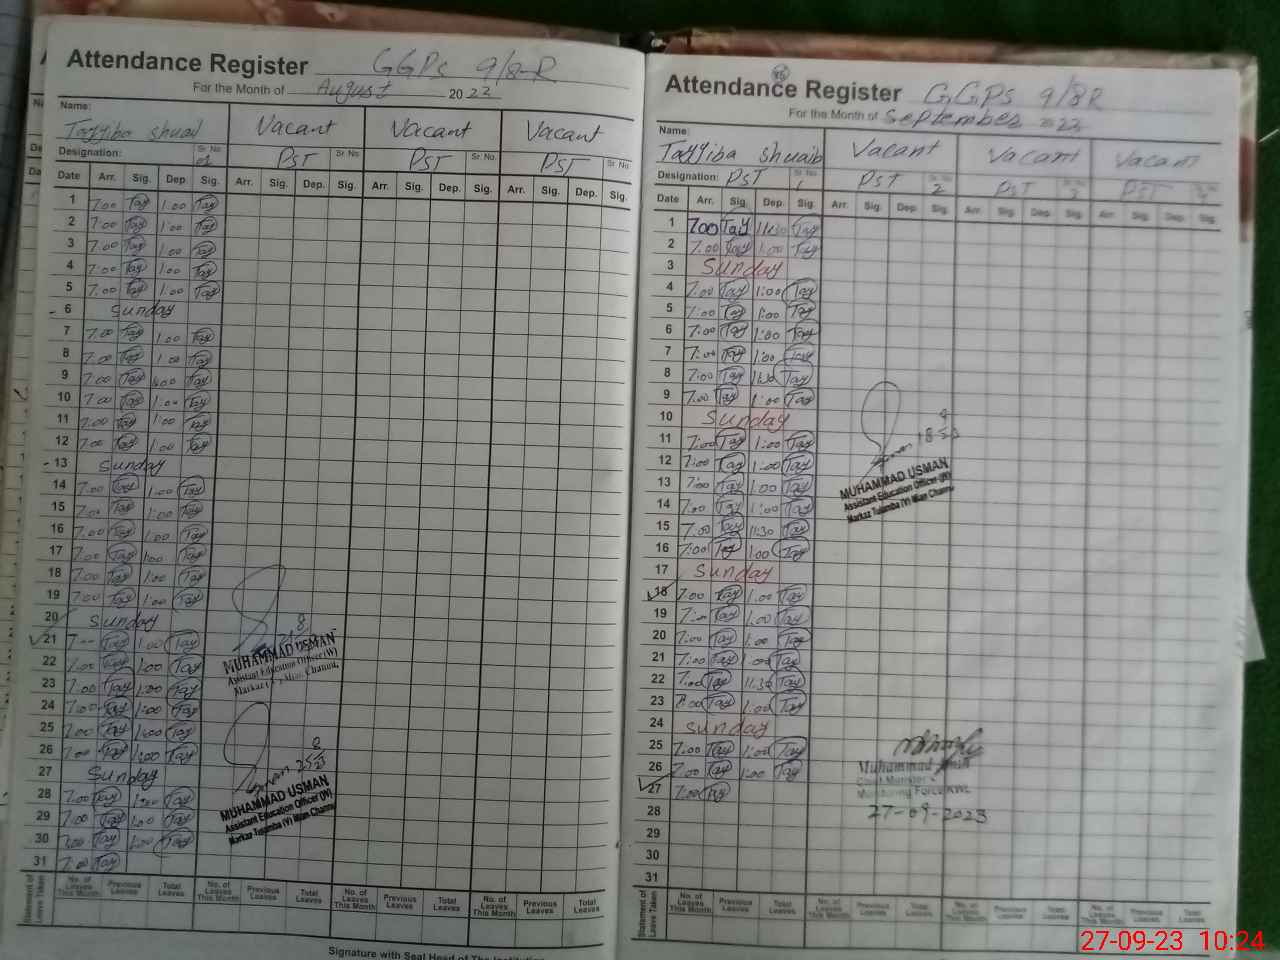 Attendance Register GGPS 9/8-R
For the Month of August 2023
Name:
Tayyiba Shuaib Vacant Vacant Vacant
Designation: Sr. No. 01 PST Sr. No. PST Sr. No. PST Sr. No.
Date Arr. Sig. Dep. Sig. Arr. Sig. Dep. Sig. Arr. Sig. Dep. Sig. Arr. Sig. Dep. Sig.
1 7.00 Tay 1:00 Tay
2 7:00 Tay 1:00 Tay
3 7:00 Tay 1:00 Tay
4 7:00 Tay 1:00 Tay
5 7:00 Tay 1:00 Tay
6 Sunday
7 7:00 Tay 1:00 Tay
8 7:00 Tay 1:00 Tay
9 7:00 Tay 1:00 Tay
10 7:00 Tay 1:00 Tay
11 7:00 Tay 1:00 Tay
12 7:00 Tay 1:00 Tay
13 Sunday
14 7:00 Tay 1:00 Tay
15 7:00 Tay 1:00 Tay
16 7:00 Tay 1:00 Tay
17 7:00 Tay 1:00 Tay
18 7:00 Tay 1:00 Tay
19 7:00 Tay 1:00 Tay
20 Sunday
21 7-- Tay 1:00 Tay
22 7:00 Tay 1:00 Tay
23 7:00 Tay 1:00 Tay
24 7:00 Tay 1:00 Tay
25 7:00 Tay 1:00 Tay
26 7:00 Tay 1:00 Tay
27 Sunday
28 7:00 Tay 1:00 Tay
29 7:00 Tay 1:00 Tay
30 7:00 Tay 1:00 Tay
31 7:00 Tay
MUHAMMAD USMAN
Assistant Education Officer (W)
MUHAMMAD USMAN
Assistant Education Officer (W)
Markaz Tulamba (V) Mian Channu
Statement of Leave Taken
No. of Leaves This Month Previous Leaves Total Leaves No. of Leaves This Month Previous Leaves Total Leaves No. of Leaves This Month Previous Leaves Total Leaves No. of Leaves This Month Previous Leaves Total Leaves
Signature with Seal Head of The
Attendance Register GGPS 9/8R
For the Month of September 2023
Name:
Tayyiba Shuaib Vacant Vacant Vacant
Designation: PST Sr. No. 1 PST Sr. No. 2 PST Sr. No. 3 PST Sr. No. 4
Date Arr. Sig. Dep. Sig. Arr. Sig. Dep. Sig. Arr. Sig. Dep. Sig. Arr. Sig. Dep. Sig.
1 7.00 Tay 11:30 Tay
2 7:00 Tay 1:00 Tay
3 Sunday
4 7:00 Tay 1:00 Tay
5 7:00 Tay 1:00 Tay
6 7:00 Tay 1:00 Tay
7 7:00 Tay 1:00 Tay
8 7:00 Tay 11:30 Tay
9 7:00 Tay 1:00 Tay
10 Sunday
11 7:00 Tay 1:00 Tay
12 7:00 Tay 1:00 Tay
13 7:00 Tay 1:00 Tay
14 7:00 Tay 1:00 Tay
15 7:00 Tay 11:30 Tay
16 7:00 Tay 1:00 Tay
17 Sunday
18 7:00 Tay 1:00 Tay
19 7:00 Tay 1:00 Tay
20 7:00 Tay 1:00 Tay
21 7:00 Tay 1:00 Tay
22 7:00 Tay 11:30 Tay
23 8:00 Tay 1:00 Tay
24 Sunday
25 7:00 Tay 1:00 Tay
26 7:00 Tay 1:00 Tay
27 7:00 Tay
28
29
30
31
MUHAMMAD USMAN
Assistant Education Officer (W)
Markaz Tulamba (V) Mian Channu
Muhammad Amin
Chief Minister's
Monitoring Force KWL
27-09-2023
Statement of Leave Taken
No. of Leaves This Month Previous Leaves Total Leaves No. of Leaves This Month Previous Leaves Total Leaves No. of Leaves This Month Previous Leaves Total Leaves No. of Leaves This Month Previous Leaves Total Leaves
27-09-23 10:24